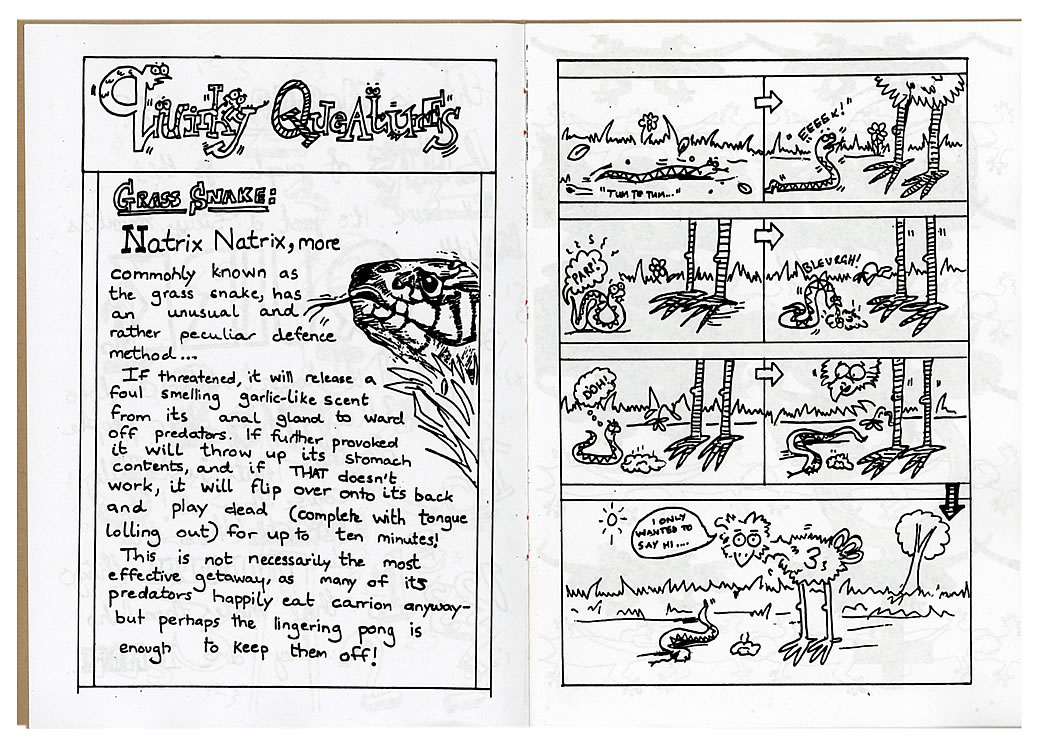 Quirky Queatures
Grass Snake:
Natrix Natrix, more
commonly known as
the grass snake, has
an unusual and
rather peculiar defence
method...
If threatened, it will release a
foul smelling garlic-like scent
from its anal gland to ward
off predators. If further provoked
it will throw up its stomach
contents, and if THAT doesn't
work, it will flip over onto its back
and play dead (complete with tongue
lolling out) for up to ten minutes!
This is not necessarily the most
effective getaway, as many of its
predators happily eat carrion anyway-
but perhaps the lingering pong is
enough to keep them off!
"TUM TE TUM..."
"EEEEK!"
PARP!
BLEURGH!
DOH!
I ONLY
WANTED TO
SAY HI....